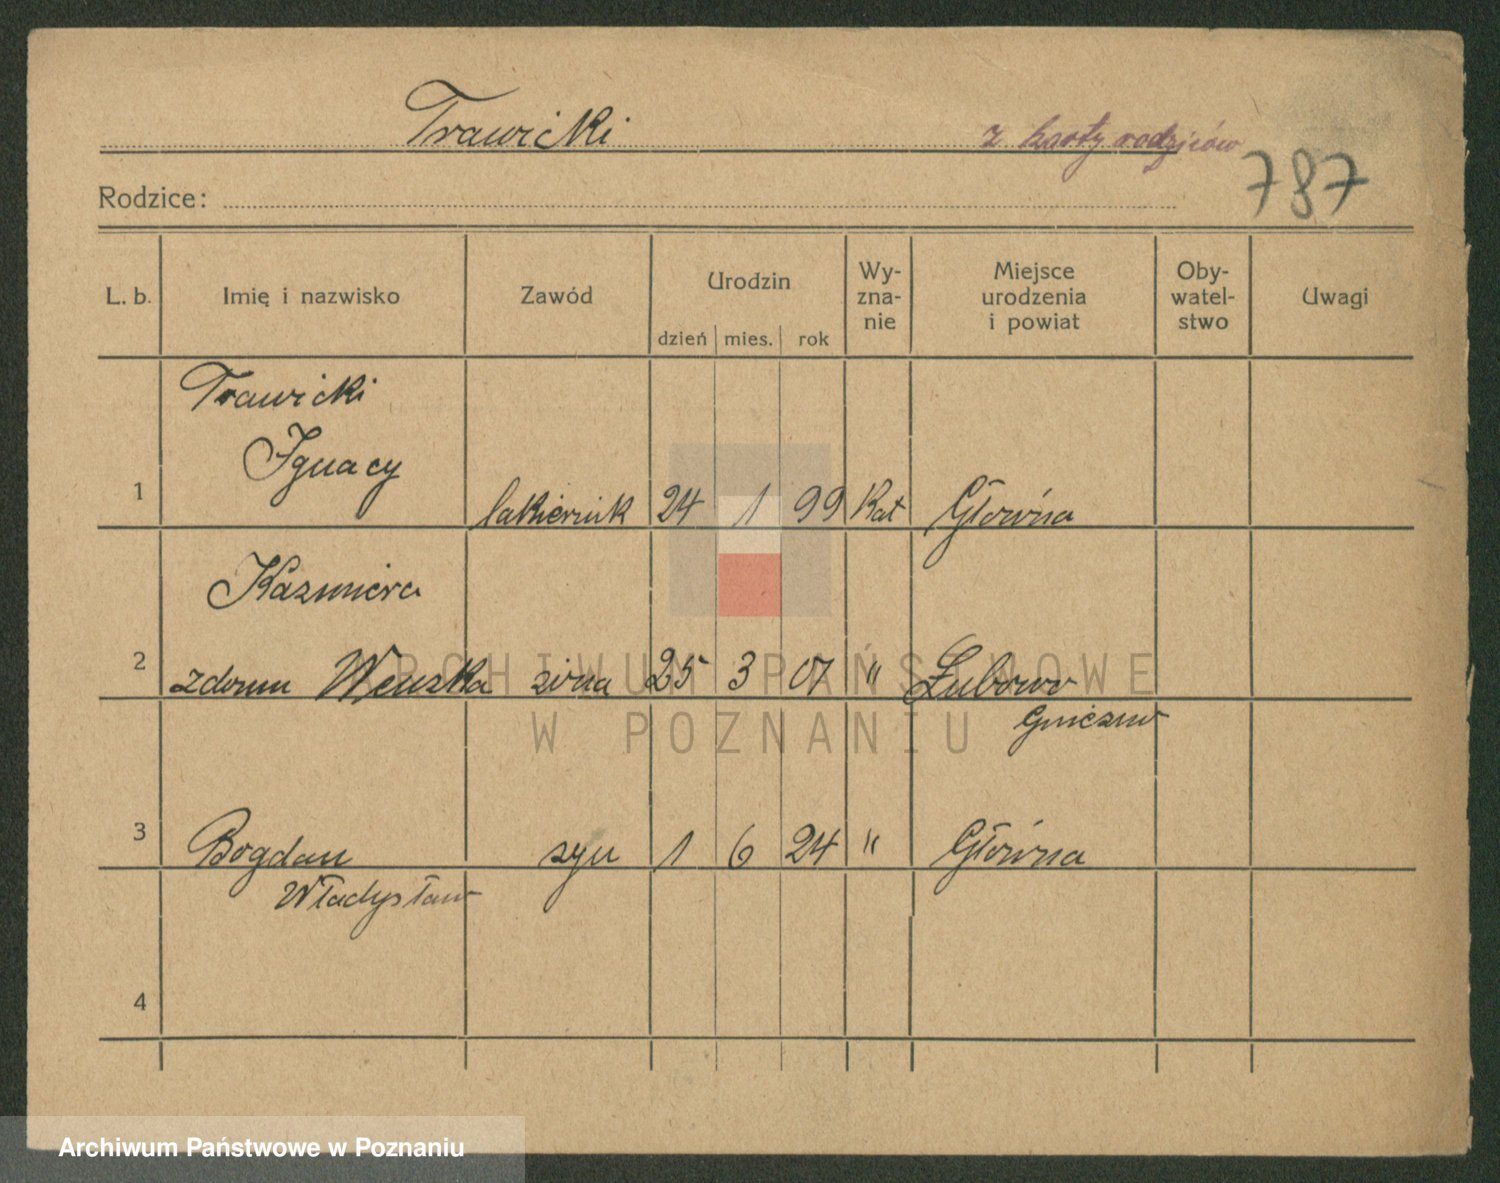 Trawicki
z karty rodziców
787
Rodzice:
L. b. Imię i nazwisko Zawód Urodzin dzień mies. rok Wy-zna-nie Miejsce urodzenia i powiat Oby-watel-stwo Uwagi
Trawicki
Ignacy
1 lakiernik 24 1 99 Kat Główna
Kazimiera
2 zdomu Wenzka żona 25 3 07 " Łubowo
Gniezno
3 Bogdan syn 1 6 24 " Główna
Władysław
4
ARCHIWUM PAŃSTWOWE
W POZNANIU
Archiwum Państwowe w Poznaniu